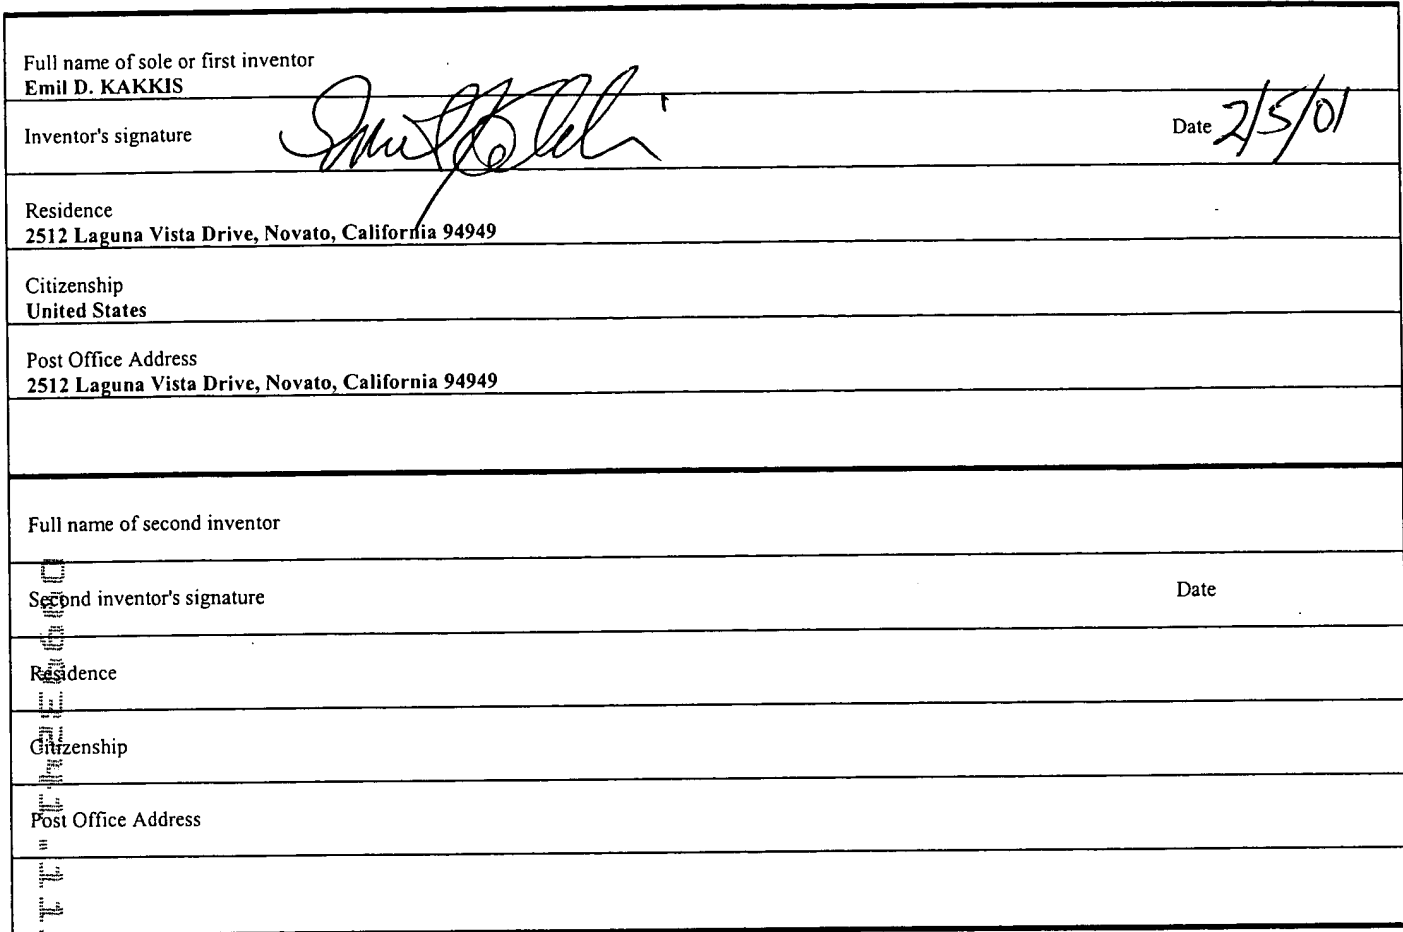 Full name of sole or first inventor
Emil D. KAKKIS
Inventor's signature
Date 2/5/01
Residence
2512 Laguna Vista Drive, Novato, California 94949
Citizenship
United States
Post Office Address
2512 Laguna Vista Drive, Novato, California 94949
Full name of second inventor
Second inventor's signature
Date
Residence
Citizenship
Post Office Address